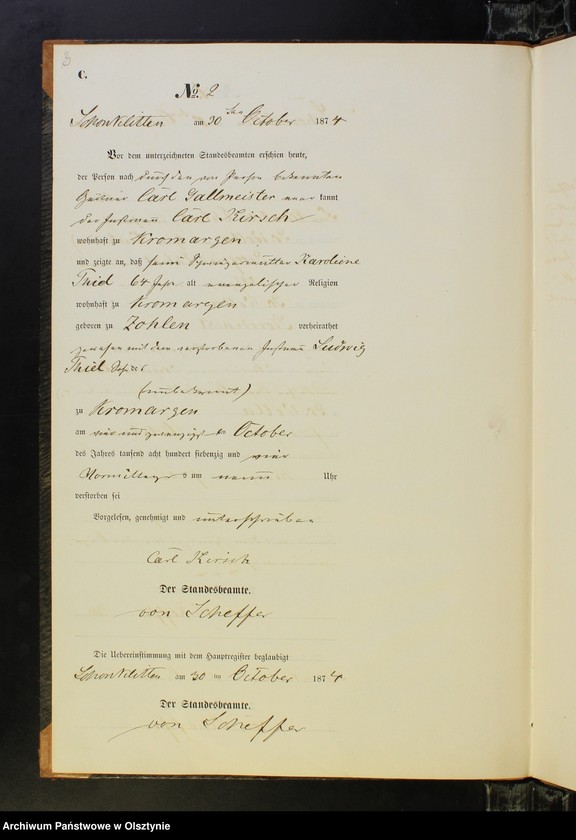 3
C.
No. 2
Schönklitten am 30ten October 1874
Vor dem unterzeichneten Standesbeamten erschien heute,
der Person nach durch den von Person bekannten
Carl Sallmeister kannt
der Instmann Carl Kirsch
wohnhaft zu Kromargen
und zeigte an, daß seine Schwiegermutter Karoline
Thiel 64 Jahr alt evangelischer Religion
wohnhaft zu Kromargen
geboren zu Zohlen verheirathet
gewesen mit dem verstorbenen Instmann Ludwig
Thiel
(unbekannt)
zu Kromargen
am vier und zwanzigsten October
des Jahres tausend acht hundert siebenzig und vier
Vormittags um neun Uhr
verstorben sei
Vorgelesen, genehmigt und unterschrieben
Carl Kirsch
Der Standesbeamte.
von Scheffer
Die Uebereinstimmung mit dem Hauptregister beglaubigt
Schönklitten am 30 ten October 1874
Der Standesbeamte.
von Scheffer
Archiwum Państwowe w Olsztynie